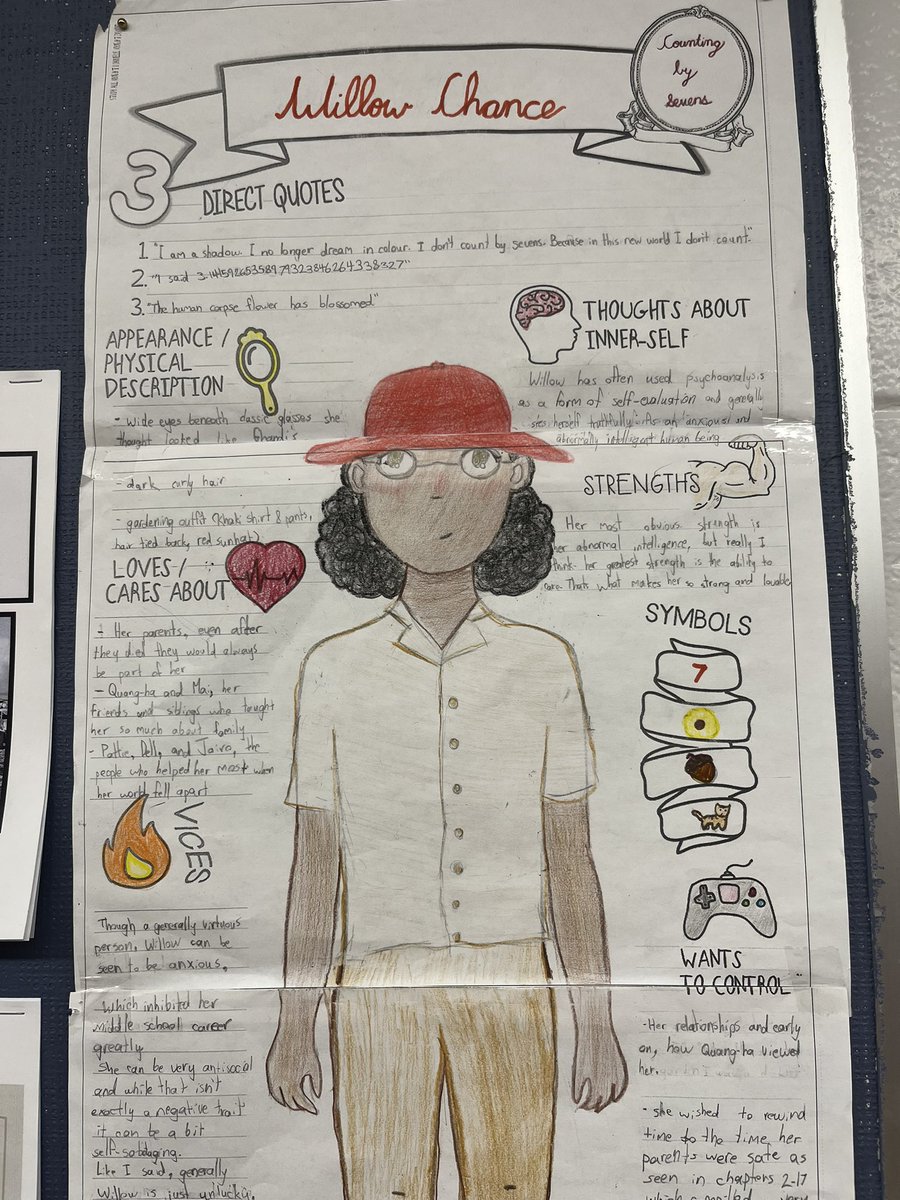 Willow Chance
Counting
by
Sevens
3 DIRECT QUOTES
1. "I am a shadow. I no longer dream in colour. I don't count by sevens. Because in this new world I don't count."
2. "I said 3.14159265358979323846264338327"
3. "The human corpse flower has blossomed"
APPEARANCE /
PHYSICAL
DESCRIPTION
- Wide eyes beneath classic glasses she
thought looked like Ghandi's
- dark curly hair
- gardening outfit (Khaki shirt & pants,
hair tied back, red sunhat)
THOUGHTS ABOUT
INNER-SELF
Willow has often used psychoanalysis
as a form of self-evaluation and generally
sees herself truthfully. As an anxious and
abnormally intelligent human being
STRENGTHS
Her most obvious strength is
her abnormal intelligence, but really I
think her greatest strength is the ability to
care. Thats what makes her so strong and lovable
LOVES /
CARES ABOUT
- Her parents, even after
they died they would always
be part of her
- Quang-ha and Mai, her
friends and siblings who taught
her so much about family
- Pattie, Dell, and Jairo, the
people who helped her most when
her world fell apart
SYMBOLS
7
VICES
Though a generally virtuous
person, Willow can be
seen to be anxious,
which inhibited her
middle school career
greatly
She can be very antisocial
and while that isn't
exactly a negative trait
it can be a bit
self-sabotaging.
Like I said, generally
Willow is just unlucky,
WANTS
TO CONTROL
- Her relationships and early
on, how Quang-ha viewed
her.
- she wished to rewind
time to the time her
parents were safe as
seen in chapters 2-17